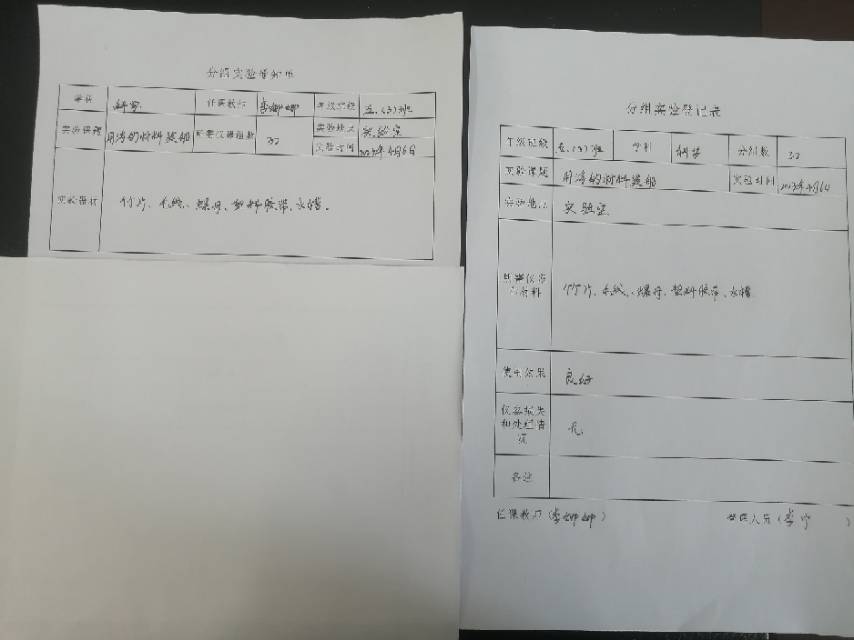 分组实验通知单
学科 科学 任课教师 李娜娜 年级班级 五.(3)班
实验课题 用浮的材料造船 所需仪器组数 32 实验地点 实验室
实验时间 2023年4月6日
实验器材 竹片、毛线、螺母、塑料胶带、水槽.
分组实验登记表
年级班级 五.(3)班 学科 科学 分组数 32
实验课题 用浮的材料造船 实验时间 2023年4月6日
实验地点 实验室
所需仪器与材料 竹片、毛线、螺母、塑料胶带、水槽
使用效果 良好
仪器损失和处理情况 无.
备注
任课教师(李娜娜) 管理人员(李宁)